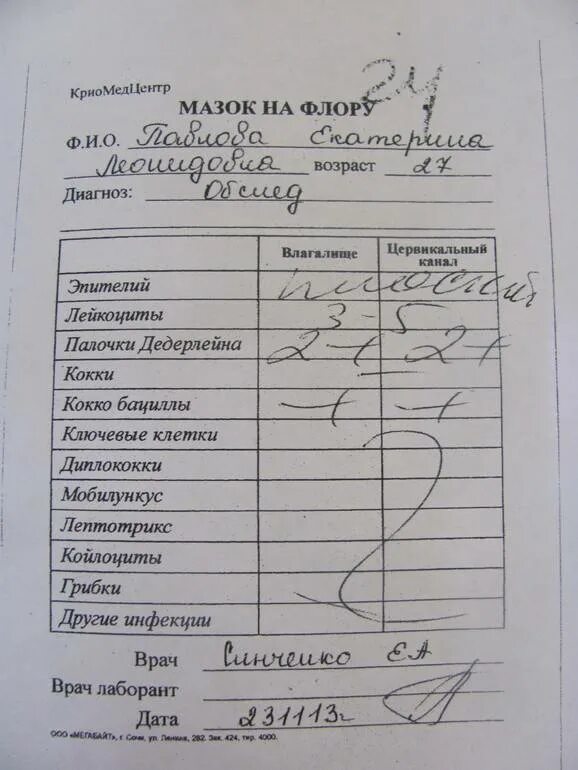 КриоМедЦентр
24
МАЗОК НА ФЛОРУ
Ф.И.О. Павлова Екатерина
Леонидовна возраст 27
Диагноз: Обслед
Влагалище Цервикальный канал
Эпителий плоский
Лейкоциты 3-5
Палочки Дедерлейна 2+ 2+
Кокки —
Кокко бациллы + +
Ключевые клетки
Диплококки
Мобилункус
Лептотрикс
Койлоциты
Грибки
Другие инфекции
Врач Синченко ЕА
Врач лаборант
Дата 231113г
ООО «МЕГАБАЙТ», г. Сочи, ул. Ленина, 282. Зак. 424, тир. 4000.